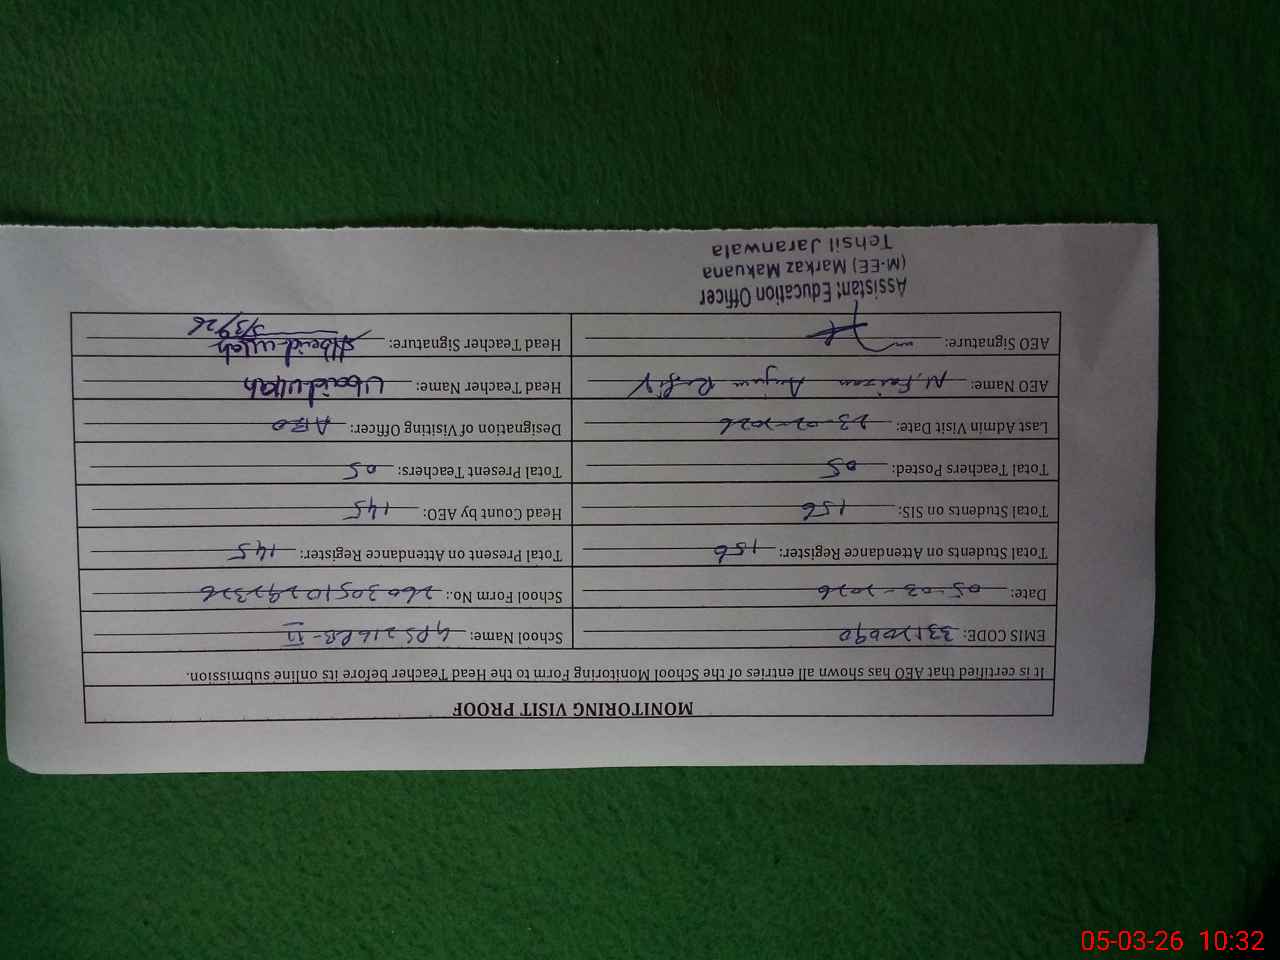 MONITORING VISIT PROOF
It is certified that AEO has shown all entries of the School Monitoring Form to the Head Teacher before its online submission.
EMIS CODE: 33120090 School Name: GPS 216 RB-II
Date: 05-03-2026 School Form No.:
Total Students on Attendance Register: 156 Total Present on Attendance Register: 145
Total Students on SIS: 156 Head Count by AEO: 145
Total Teachers Posted: 05 Total Present Teachers: 05
Last Admin Visit Date: 23-02-2026 Designation of Visiting Officer: AEO
AEO Name: M. Faizan Anjum Rafiq Head Teacher Name: Ubaidullah
AEO Signature: Head Teacher Signature: Ubaidullah
5/3/26
Assistant Education Officer
(M-EE) Markaz Makuana
Tehsil Jaranwala
05-03-26 10:32